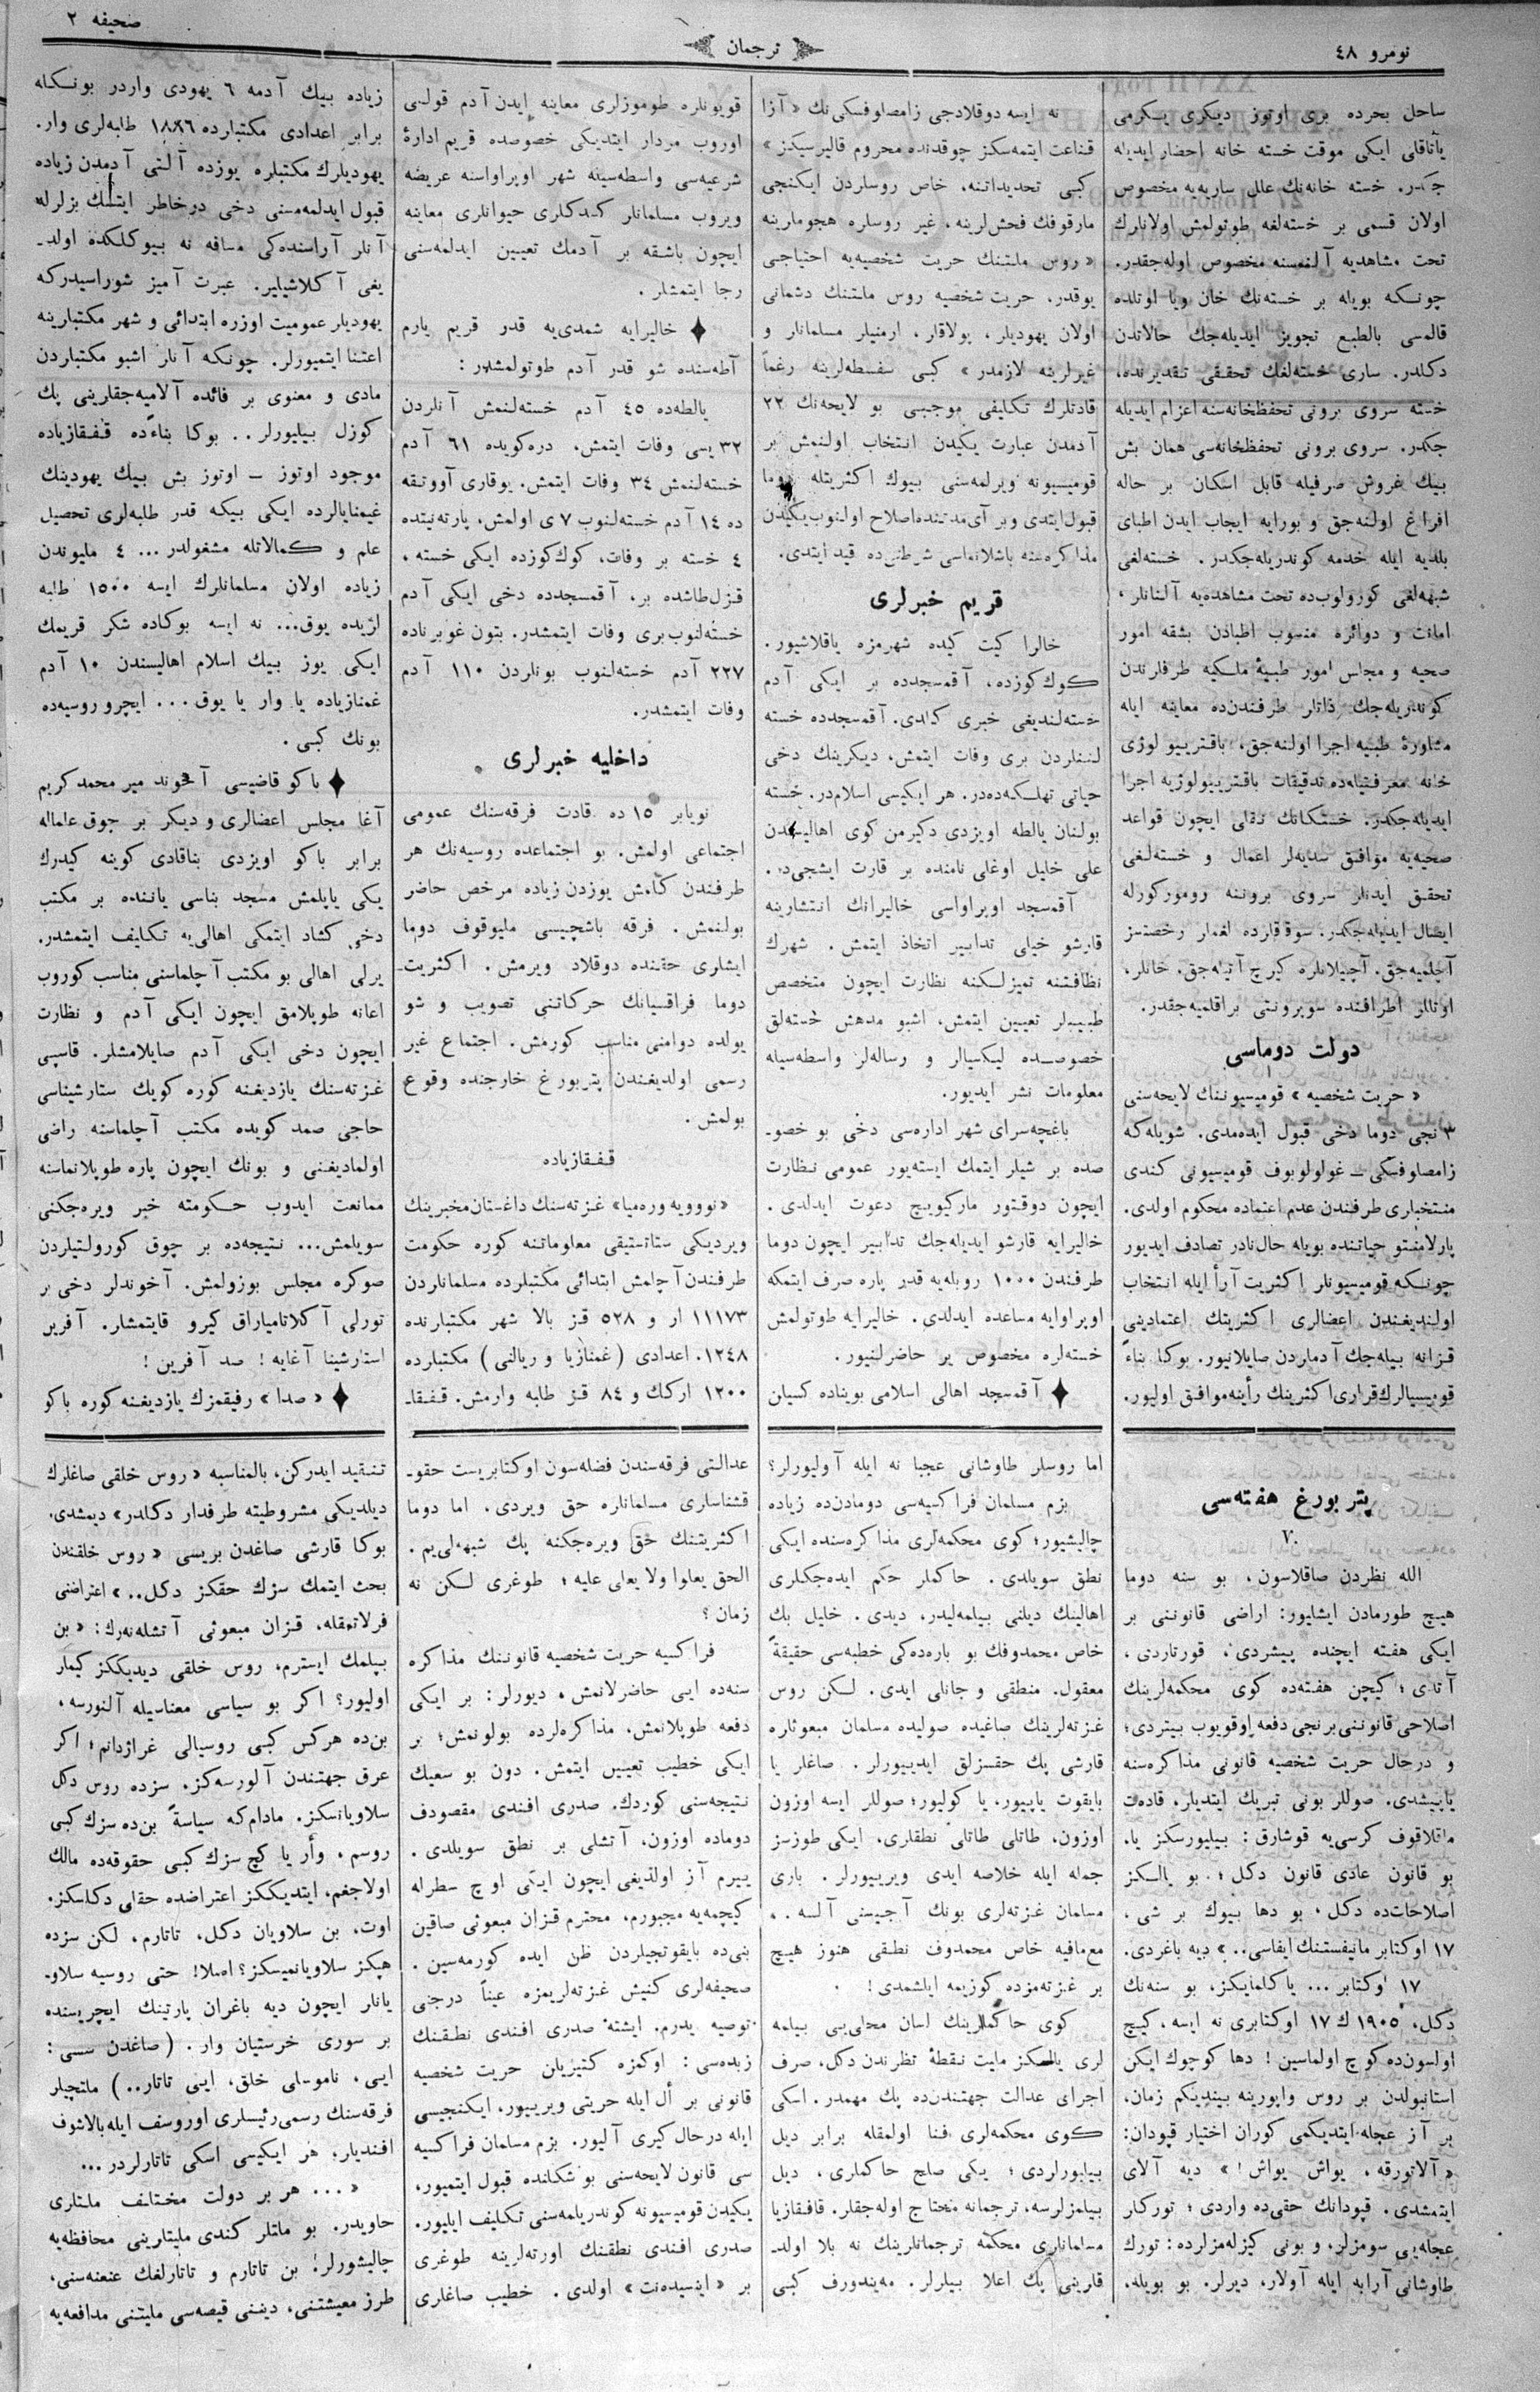 نومرو ٤٨
ترجمان
صحیفه ٢
ساحل بحرده بری اوتوز دیکری یکرمی
یاتاقلی ایکی موقت خسته خانه احضار ایدیله
جکدر. خسته خانه‌نك علل ساریه‌یه مخصوص
اولان قسمی بر خسته‌لغه طوتولمش اولانلرك
تحت مشاهدیه آلنمسنه مخصوص اوله‌جقدر.
چونکه بویله بر خسته‌نك خان ویا اوتلده
قالمسی بالطبع تجویز ایدیله‌جك حالاتدن
دکلدر. ساری خسته‌لغك تحققی تقدیرنده،
خسته سروی برونی تحفظخانه‌سنه اعزام ایدیله
جکدر. سروی برونی تحفظخانه‌سی همان بش
بیك غروش صرفیله قابل اسکان بر حاله
افراغ اولنه‌جق و بورایه ایجاب ایدن اطبای
بلدیه ایله خدمه کوندریله‌جکدر. خسته‌لغی
شبهه‌لغی کورولوب‌ده تحت مشاهده‌یه آلنانلر،
امانت و دوائره منسوب اطبادن بشقه امور
صحیه و مجلس امور طبیهٔ ملکیه طرفلرندن
کوندریله‌جك ذاتلر طرفندن‌ده معاینه ایله
مشاورهٔ طبیه اجرا اولنه‌جق، باقتریولوژی
خانه معرفتیله‌ده تدقیقات باقتریولوژیه اجرا
ایدیله‌جکدر. خستکانك نقلی ایچون قواعد
صحیه‌یه موافق سدیه‌لر اعمال و خسته‌لغی
تحقق ایدنلر سروی بروننه رومورکورله
ایصال ایدیله‌جکدر. سوقاقلرده لغملر رخصتسز
آچلمیه‌جق. آچیلانلره کیرج آتیله‌جق. خانلر،
اوتللر اطرافنده سوپرونتی براقلمیه‌جقدر.
دولت دوماسی
« حریت شخصیه » قومیسیوننك لایحه‌سنی
٣ نجی دوما دخی قبول ایده‌مدی. شویله‌که
زامصلوفسکی — غولولوبوف قومیسیونی کندی
منتخبلری طرفندن عدم اعتماده محکوم اولدی.
پارلامنتو حیاتنده بویله حال نادر تصادف ایدیور
چونکه قومیسیونلر اکثریت آرأ ایله انتخاب
اولندیغندن اعضالری اکثریتك اعتمادینی
قزانه بیله‌جك آدملردن صایلانیور. بوکا بناءً
قومسیالرك قراری اکثرینك رأینه موافق اولیور.
نه ایسه دوقلادجی زامصلوفسکی‌نك « آزا
قناعت ایتمه‌سکز چوقدنده محروم قالیرسیکز »
کبی تحدیداتنه، خاص روسلردن ایکنجی
مارقوفك فحش‌لرینه، غیر روسلره هجوملرینه
« روس ملتنك حریت شخصیه‌یه احتیاجی
یوقدر. حریت شخصیه روس ملتنك دشمانی
اولان یهودیلر، پولاقلر، ارمنیلر مسلمانلر و
غیرلرینه لازمدر » کبی سفسطه‌لرینه رغماً
قادتلرك تکلیفی موجبی بو لایحه‌نك ٢٢
آدمدن عبارت یکیدن انتخاب اولنمش بر
قومیسیونه ویرلمه‌سنی بیوك اکثریتله دوما
قبول ایتدی و بر آی مدتنده اصلاح اولنوب یکیدن
مذاکره‌سنه باشلانماسی شرطنی‌ده قید ایتدی.
قریم خبرلری
خالرا کیت کیده شهرمزه یاقلاشیور.
کوك‌کوزده، آقمسجدده بر ایکی آدم
خسته‌لندیغی خبری کلدی. آقمسجدده خسته
لننلردن بری وفات ایتمش، دیکرینك دخی
حیاتی تهلکه‌ده‌در. هر ایکیسی اسلام‌در. خسته
بولنان یالطه اویزدی دکیرمن کوی اهالیسندن
علی خلیل اوغلی نامنده بر قارت ایشجی‌در.
آقمسجد اوپراواسی خالیرانك انتشارینه
قارشو خیلی تدابیر اتخاذ ایتمش. شهرك
نظافتنه تمیزلکنه نظارت ایچون متخصص
طبیبلر تعیین ایتمش، اشبو مدهش خسته‌لق
خصوصده لیکسیالر و رساله‌لر واسطه‌سیله
معلومات نشر ایدیور.
باغچه‌سرای شهر اداره‌سی دخی بو خصو-
صده بر شیلر ایتمك ایسته‌یور عمومی نظارت
ایچون دوقتور مارکیویچ دعوت ایدلدی.
خالیرایه قارشو ایدیله‌جك تدابیر ایچون دوما
طرفندن ١٠٠٠ روبله‌یه قدر پاره صرف ایتمکه
اوپراوایه مساعده ایدلدی. خالیرایه طوتولمش
خسته‌لره مخصوص یر حاضرلنیور.
آقمسجد اهالی اسلامی بویناده کسیلن
قویونلره طوموزلری معاینه ایدن آدم قولی
اوروب مردار ایتدیکی خصوصده قریم ادارهٔ
شرعیه‌سی واسطه‌سیله شهر اوپراواسنه عریضه
ویروب مسلمانلر کسدکلری حیوانلری معاینه
ایچون باشقه بر آدمك تعیین ایدلمه‌سنی
رجا ایتمشلر.
خالیرایه شمدی‌یه قدر قریم یارم
آطه‌سنده شو قدر آدم طوتولمشدر:
یالطه‌ده ٤٥ آدم خسته‌لنمش آنلردن
٣٢ یسی وفات ایتمش، دره‌کویده ٦١ آدم
خسته‌لنمش ٣٤ وفات ایتمش. یوقاری آووتقه
ده ١٤ آدم خسته‌لنوب ٧ ی اولمش، پارته‌نیتده
٤ خسته بر وفات، کوك‌کوزده ایکی خسته،
قزل‌طاشده بر، آقمسجدده دخی ایکی آدم
خسته‌لنوب بری وفات ایتمشدر. بتون غوبرناده
٢٢٧ آدم خسته‌لنوب بونلردن ١١٠ آدم
وفات ایتمشدر.
داخلیه خبرلری
نویابر ١٥ ده قادت فرقه‌سنك عمومی
اجتماعی اولمش. بو اجتماعده روسیه‌نك هر
طرفندن کلمش یوزدن زیاده مرخص حاضر
بولنمش. فرقه باشچیسی ملیوقوف دوما
ایشلری حقنده دوقلاد ویرمش. اکثریت-
دوما فراقسیانك حرکاتنی تصویب و شو
یولده دوامنی مناسب کورمش. اجتماع غیر
رسمی اولدیغندن پتربورغ خارجنده وقوع
بولمش.
قفقازیاده
«نوویه وره‌میا» غزته‌سنك داغستان مخبرینك
ویردیکی ستاتستیقی معلوماتنه کوره حکومت
طرفندن آچلمش ابتدائی مکتبلرده مسلمانلردن
١١١٧٣ ار و ٥٢٨ قز بالا شهر مکتبلرنده
١٢٤٨. اعدادی (غمنازیا و ریالنی) مکتبلرده
١٢٠٠ ارکك و ٨٤ قز طلبه وارمش. قفقا-
زیاده بیك آدمه ٦ یهودی واردر بونکله
برابر اعدادی مکتبلرده ١٨٨٦ طلبه‌لری وار.
یهودیلرك مکتبلره یوزده آلتی آدمدن زیاده
قبول ایدلمه‌مسنی دخی درخاطر ایتسك بزلرله
آنلر آراسنده‌کی مسافه نه بیوکلکده اولد-
یغی آکلاشیلیر. عبرت آمیز شوراسیدرکه
یهودیلر عمومیت اوزره ابتدائی و شهر مکتبلرینه
اعتنا ایتمیورلر. چونکه آنلر اشبو مکتبلردن
مادی و معنوی بر فائده آلامیه‌جقلرینی پك
کوزل بیلیورلر.. بوکا بناءً‌ده قفقازیاده
موجود اوتوز — اوتوز بش بیك یهودینك
غیمنایالرده ایکی بیکه قدر طلبه‌لری تحصیل
علم و کمالاتله مشغولدر... ٤ ملیوندن
زیاده اولان مسلمانلرك ایسه ١٥٠٠ طلبه
لریده یوق... نه ایسه بوکاده شکر قریمك
ایکی یوز بیك اسلام اهالیسندن ١٠ آدم
غمنازیاده یا وار یا یوق... ایچرو روسیه‌ده
بونك کبی.
باکو قاضیسی آخوند میر محمد کریم
آغا مجلس اعضالری و دیکر بر چوق علماله
برابر باکو اویزدی بناقادی کوینه کیدرك
یکی یاپلمش مسجد بناسی یاننده بر مکتب
دخی کشاد ایتمکی اهالی‌یه تکلیف ایتمشدر.
یرلی اهالی بو مکتب آچلماسنی مناسب کوروب
اعانه طوپلامق ایچون ایکی آدم و نظارت
ایچون دخی ایکی آدم صایلامشلر. قاسپی
غزته‌سنك یازدیغنه کوره کویك ستارشیناسی
حاجی صمد کویده مکتب آچلماسنه راضی
اولمادیغنی و بونك ایچون پاره طوپلانماسنه
ممانعت ایدوب حکومته خبر ویره‌جکنی
سویلمش... نتیجه‌ده بر چوق کورولتیلردن
صوکره مجلس بوزولمش. آخوندلر دخی بر
تورلی آکلاتامیاراق کیرو قایتمشلر. آفرین
استارشینا آغایه! صد آفرین!
« صدا » رفیقمزك یازدیغنه کوره باکو
پتربورغ هفته‌سی
٧.
الله نظردن صاقلاسون، بو سنه دوما
هیچ طورمادن ایشلیور: اراضی قانوننی بر
ایکی هفته ایچنده پیشردی، قورتاردی،
آتدی؛ کیچن هفته‌ده کوی محکمه‌لرینك
اصلاحی قانوننی برنجی دفعه اوقویوب بیتردی؛
و درحال حریت شخصیه قانونی مذاکره‌سنه
یاپیشدی. صوللر بونی تبریك ایتدیلر، قاده‌ت
ماقلاقوف کرسی‌یه قوشارق: بیلیورسکز یا،
بو قانون عادی قانون دکل؛ بو یالکز
اصلاحات‌ده دکل، بو دها بیوك بر شی،
١٧ اوکتابر مانیفستنك ایفاسی.. » دیه باغردی.
١٧ اوکتابر... یاکلمایکز، بو سنه‌نك
دکل، ١٩٠٥ ك ١٧ اوکتابری نه ایسه، کیچ
اولسون‌ده کوچ اولماسین! دها کوچوك ایکن
استانبولدن بر روس واپورینه بیندیکم زمان،
بر آز عجله ایتدیکمی کوران اختیار قپودان:
« آلاتورقه، یواش یواش! » دیه آلای
ایتمشدی. قپودانك حقی‌ده واردی؛ تورکلر
عجله‌یی سومزلر، و بونی کیزله‌مزلرده: تورك
طاوشانی آرابه ایله آولار، دیرلر. بو بویله،
اما روسلر طاوشانی عجبا نه ایله آولیورلر؟
بزم مسلمان فراکسیه‌سی دومادن‌ده زیاده
چالیشیور؛ کوی محکمه‌لری مذاکره‌سنده ایکی
نطق سویلدی. حاکملر حکم ایده‌جکلری
اهالینك دیلنی بیلمه‌لیدر، دیدی. خلیل بك
خاص محمدوفك بو باره‌ده‌کی خطبه‌سی حقیقةً
معقول. منطقی و جانلی ایدی. لکن روس
غزته‌لرینك صاغیده صولیده مسلمان مبعوثلره
قارشی پك حقسزلق ایدیورلر. صاغلر یا
بایقوت یاپیور، یا کولیور؛ صوللر ایسه اوزون
اوزون، طاتلی طاتلی نطقلری، ایکی طوزسز
جمله ایله خلاصه ایدی ویریبورلر. باری
مسلمان غزته‌لری بونك آجیسنی آلسه..
مع‌مافیه خاص محمدوف نطقی هنوز هیچ
بر غزته‌مزده کوزیمه ایلشمدی!
کوی حاکملرینك لسان محلی‌یی بیلمه
لری یالکز ملیت نقطهٔ نظرندن دکل، صرف
اجرای عدالت جهتندن‌ده پك مهمدر. اسکی
کوی محکمه‌لری فنا اولمقله برابر دیل
بیلیورلردی؛ یکی صلح حاکملری، دیل
بیلمزلرسه، ترجمانه محتاج اوله‌جقلر. قافقازیا
مسلمانلری محکمه ترجمانلرینك نه بلا اولد-
قارینی پك اعلا بیلرلر. مه‌یندورف کبی
عدالتی فرقه‌سندن فضله‌سون اوکتابریست حقو-
قشناسلری مسلمانلره حق ویردی. اما دوما
اکثریتنك حق ویره‌جکنه پك شبهه‌لی‌یم.
الحق یعلوا ولا یعلی علیه؛ طوغری لکن نه
زمان؟
فراکسیه حریت شخصیه قانوننك مذاکره
سنه‌ده ایی حاضرلانمش، دیورلر: بر ایکی
دفعه طوپلانمش، مذاکره‌لرده بولونمش؛ بر
ایکی خطیب تعیین ایتمش. دون بو سعیك
نتیجه‌سنی کوردك. صدری افندی مقصودف
دوماده اوزون، آتشلی بر نطق سویلدی.
ییرم آز اولدیغی ایچون ایکی اوچ سطرله
کیچمه‌یه مجبورم، محترم قزان مبعوثی صاقین
بنی‌ده بایقوتجیلردن ظن ایده کورمه‌سین.
صحیفه‌لری کنیش غزته‌لریمزه عیناً درجنی
توصیه یدرم. ایشته صدری افندی نطقنك
زبده‌سی: اوکمزه کتیریلن حریت شخصیه
قانونی بر أل ایله حریتی ویریبور، ایکنجیسی
ایله درحال کیری آلیور. بزم مسلمان فراکسیه
سی قانون لایحه‌سنی بو شکلنده قبول ایتمیور،
یکیدن قومیسیونه کوندریلمه‌سنی تکلیف ایلیور.
صدری افندی نطقنك اورته‌لرینه طوغری
بر « اینسیده‌نت » اولدی. خطیب صاغلری
تنقید ایدرکن، بالمناسبه « روس خلقی صاغلرك
دیلدیکی مشروطیته طرفدار دکلدر » دیمشدی.
بوکا قارشی صاغدن بریسی « روس خلقندن
بحث ایتمك سزك حقکز دکل.. » اعتراضنی
فرلاتمقله، قزان مبعوثی آتشله‌نه‌رك: « بن
بیلمك ایسترم، روس خلقی دیدیککز کیملر
اولیور؟ اکر بو سیاسی معناسیله آلنورسه،
بن‌ده هرکس کبی روسیالی غراژدانم؛ اکر
عرق جهتندن آلورسه‌کز، سزده روس دکل
سلاویانسکز. مادام‌که سیاسةً بن‌ده سزك کبی
روسم، وأر یا کچ سزك کبی حقوقه‌ده مالك
اولاجغم، ایتدیککز اعتراضده حقلی دکلسکز.
اوت، بن سلاویان دکل، تاتارم، لکن سزده
هپکز سلاویانمیسکز؟ اصلا! حتی روسیه سلاو-
یانلر ایچون دیه باغران پارتینك ایچریسنده
بر سوری خرستیان وار. (صاغدن سسی:
ایی، ناموسلی خلق، ایی تاتار..) ملتچیلر
فرقه‌سنك رسمی رئیسلری اوروسف ایله بالاشوف
افندیلر، هر ایکیسی اسکی تاتارلردر...
« ... هر بر دولت مختلف ملتلری
حاویدر. بو ملتلر کندی ملیتلرینی محافظه‌یه
چالیشورلر؛ بن تاتارم و تاتارلغك عنعنه‌سنی،
طرز معیشتنی، دیننی قیصه‌سی ملیتنی مدافعه‌یه